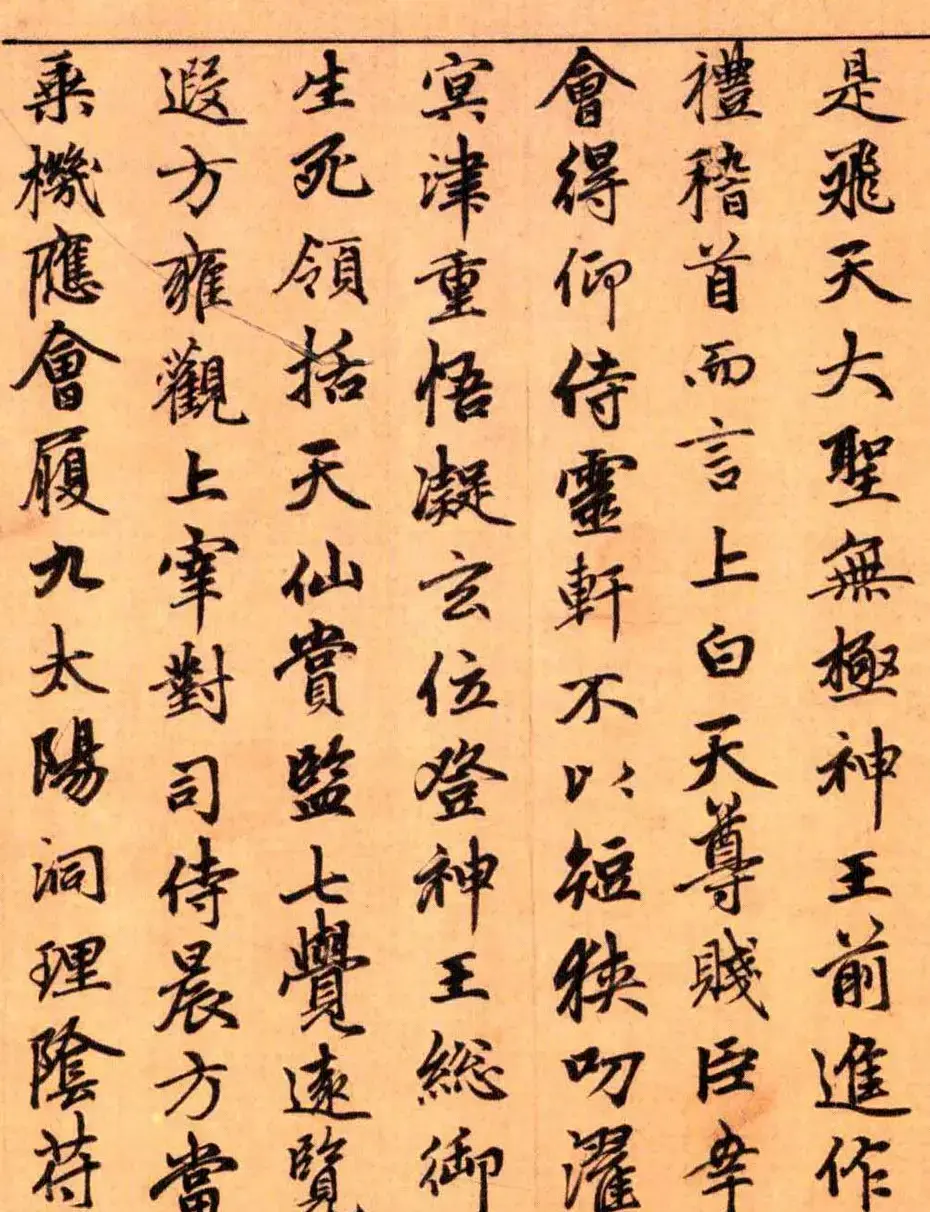 是飛天大聖無極神王前進作
禮稽首而言上白天尊賤臣幸
會得仰侍靈軒不以短狹叨濯
冥津重悟凝玄位登神王総御
生死領括天仙賞監七覺遠覽
遐方雍觀上宰對司侍晨方當
乘機應會履九太陽洞理陰苻